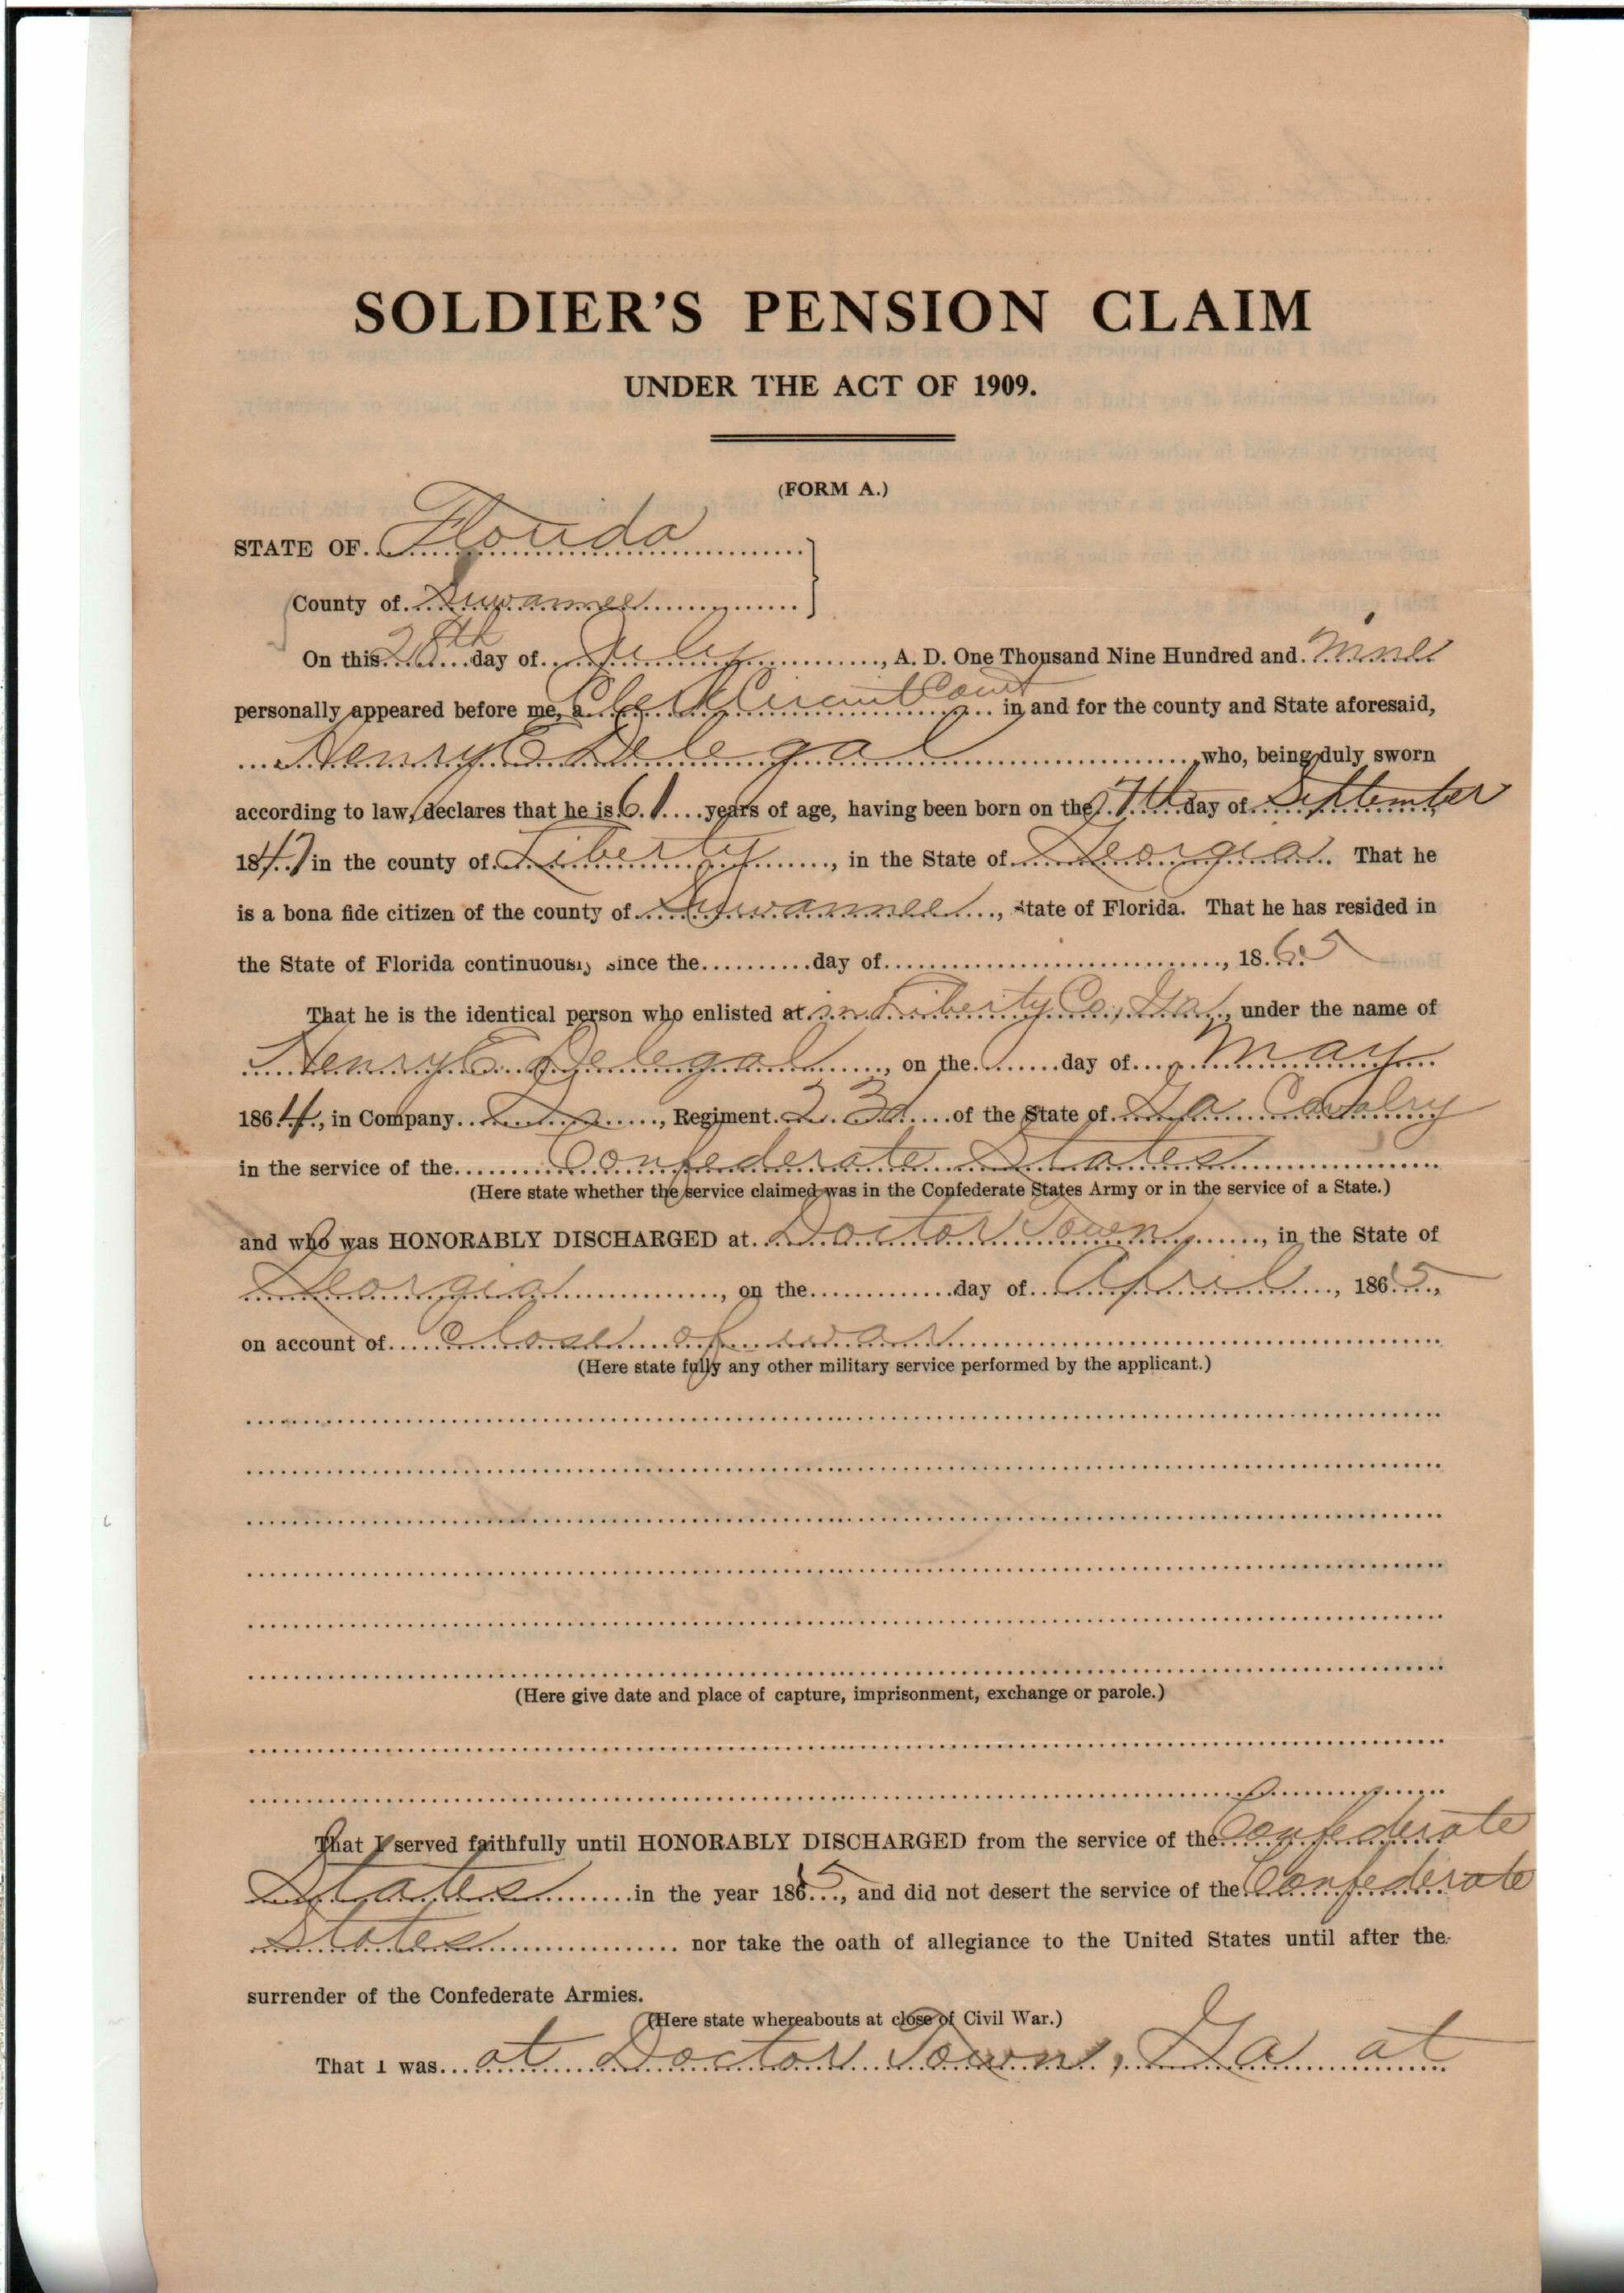 SOLDIER'S PENSION CLAIM
UNDER THE ACT OF 1909.
(FORM A.)
STATE OF Florida
County of Suwannee
On this 28th day of July, A. D. One Thousand Nine Hundred and Nine
personally appeared before me, a Clerk Circuit Court in and for the county and State aforesaid,
Henry E Delegal who, being duly sworn
according to law, declares that he is 61 years of age, having been born on the 7th day of September
1847 in the county of Liberty, in the State of Georgia. That he
is a bona fide citizen of the county of Suwannee, State of Florida. That he has resided in
the State of Florida continuously since the day of , 1865
That he is the identical person who enlisted at in Liberty Co, Ga, under the name of
Henry E. Delegal, on the day of May
1864, in Company , Regiment of the State of Ga Cavalry
in the service of the Confederate States
(Here state whether the service claimed was in the Confederate States Army or in the service of a State.)
and who was HONORABLY DISCHARGED at Doctor Town, in the State of
Georgia, on the day of April, 1865,
on account of Close of war
(Here state fully any other military service performed by the applicant.)
(Here give date and place of capture, imprisonment, exchange or parole.)
That I served faithfully until HONORABLY DISCHARGED from the service of the Confederate
States in the year 1865, and did not desert the service of the Confederate
States nor take the oath of allegiance to the United States until after the
surrender of the Confederate Armies.
(Here state whereabouts at close of Civil War.)
That I was at Doctor Town, Ga at